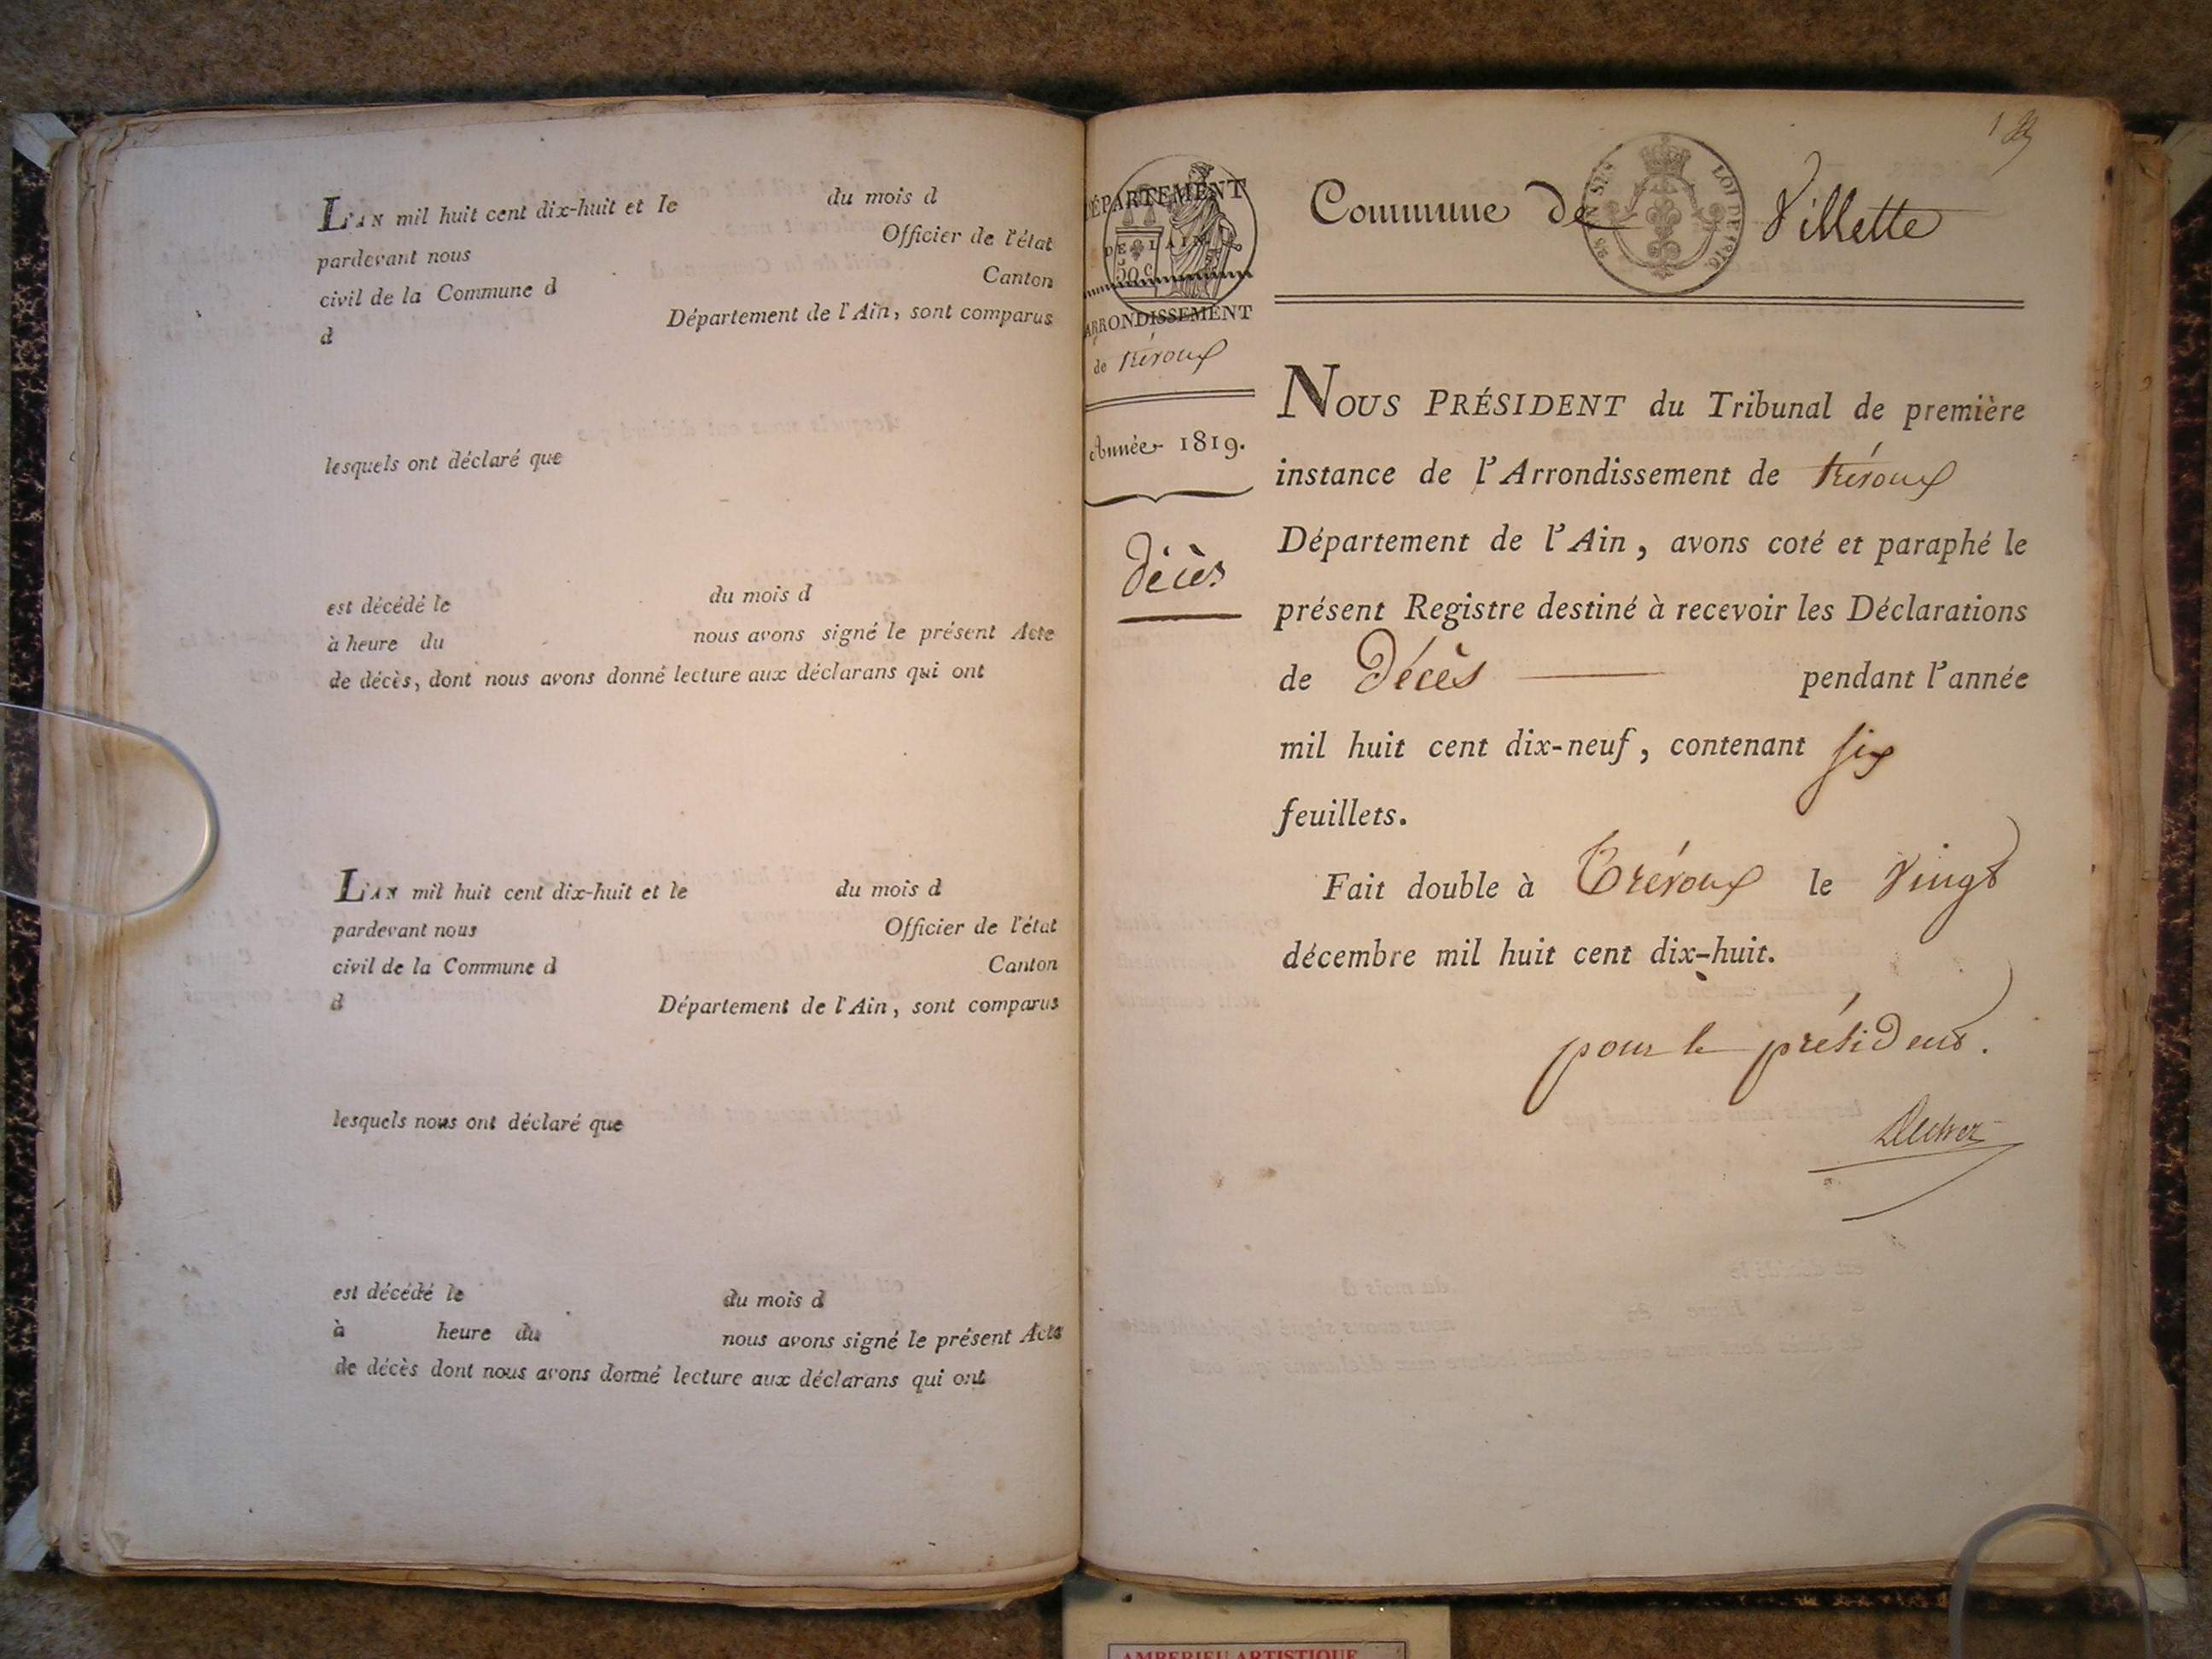 L'AN mil huit cent dix-huit et le du mois d
pardevant nous Officier de l'état
civil de la Commune d Canton
d Département de l'Ain, sont comparus
lesquels ont déclaré que
est décédé le du mois d
à heure du nous avons signé le présent Acte
de décès, dont nous avons donné lecture aux déclarans qui ont
L'AN mil huit cent dix-huit et le du mois d
pardevant nous Officier de l'état
civil de la Commune d Canton
d Département de l'Ain, sont comparus
lesquels nous ont déclaré que
est décédé le du mois d
à heure du nous avons signé le présent Acte
de décès dont nous avons donné lecture aux déclarans qui ont
DÉPARTEMENT
DE L'AIN
50 c
ARRONDISSEMENT
de Trévoux
Année 1819.
Décès
Commune de Villette
LOI DE 1816
NOUS PRÉSIDENT du Tribunal de première
instance de l'Arrondissement de Trévoux
Département de l'Ain, avons coté et paraphé le
présent Registre destiné à recevoir les Déclarations
de Décès pendant l'année
mil huit cent dix-neuf, contenant six
feuillets.
Fait double à Trévoux le vingt
décembre mil huit cent dix-huit.
pour le président.
AMBERIEU ARTISTIQUE